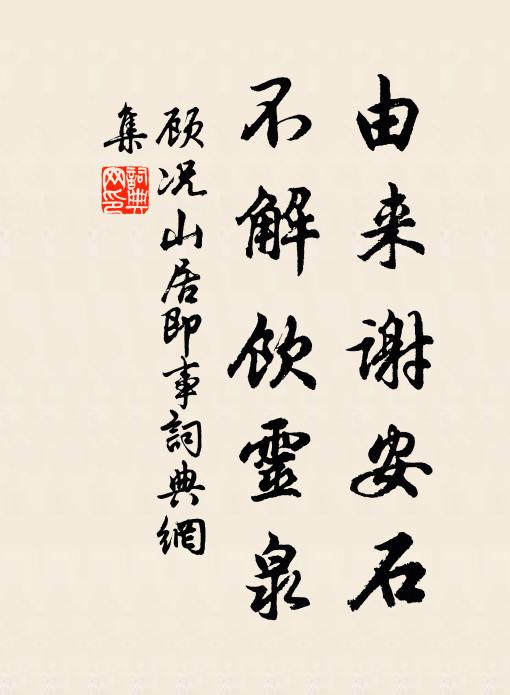 由来谢安石
不解饮靈泉
顾况山居即事詞典網
集
詞典网印